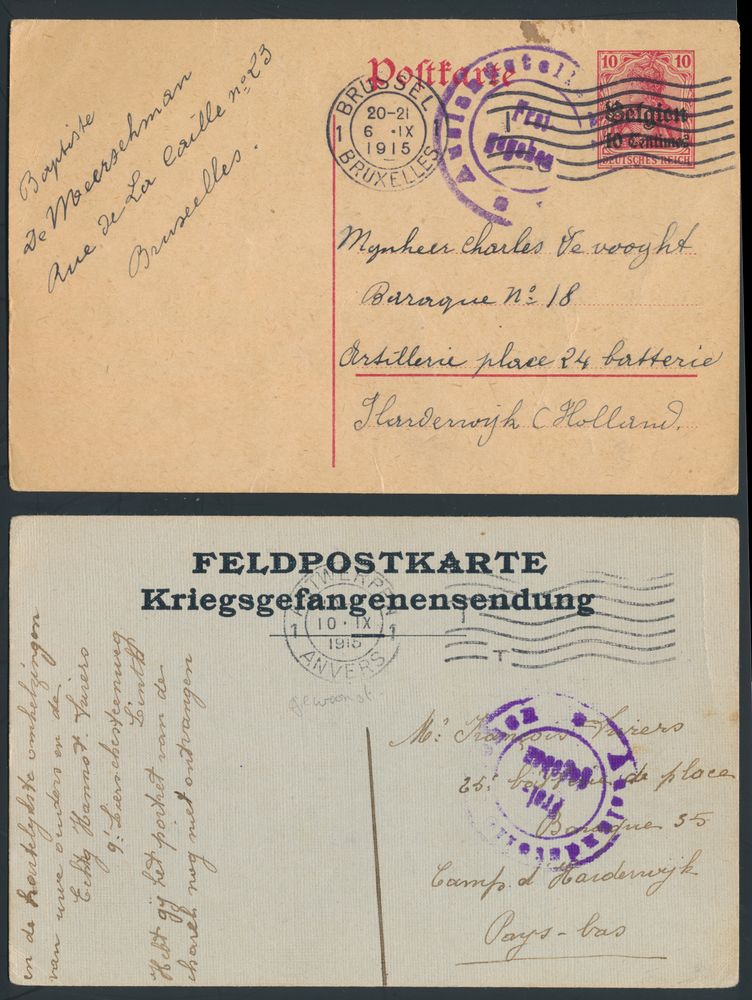 Postkarte
10 10
Belgien
10 Centimes
DEUTSCHES REICH
BRUSSEL
20-21
1 6 IX 1
1915
BRUXELLES
Frei
gegeben
Baptiste
De Meerschman
Rue de La Caille nº 23
Bruxelles.
Mynheer Charles De vooght
Baraque Nº 18
Artillerie place 24 batterie
Harderwijk (Holland.
FELDPOSTKARTE
Kriegsgefangenensendung
ANTWERPEN
1 10 IX 1
1915
ANVERS
T
gewoonst.
Frei-
gegeben
Mr François
25e batterie de place
Baraque 35
Camp d'Harderwijk
Pays-bas
en de hartelijkste omhelzingen
van uwe ouders en de
Echtg Hannot.
9. Lierschesteenweg
Linth
Hebt gij het portret van de
nog niet ontvangen